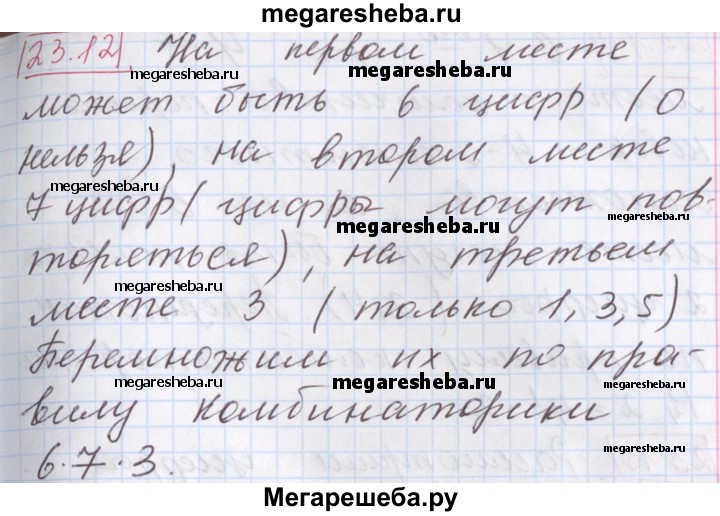 megaresheba.ru
23.12. На первом месте
megaresheba.ru
megaresheba.ru
может быть 6 цифр (0
megaresheba.ru
нельзя), на втором месте
megaresheba.ru
7 цифр (цифры могут пов-
megaresheba.ru
торяться), на третьем
месте 3 (только 1, 3, 5)
Перемножим их по пра-
megaresheba.ru
megaresheba.ru
вилу комбинаторики
megaresheba.ru
6·7·3.
Мегарешеба.ру